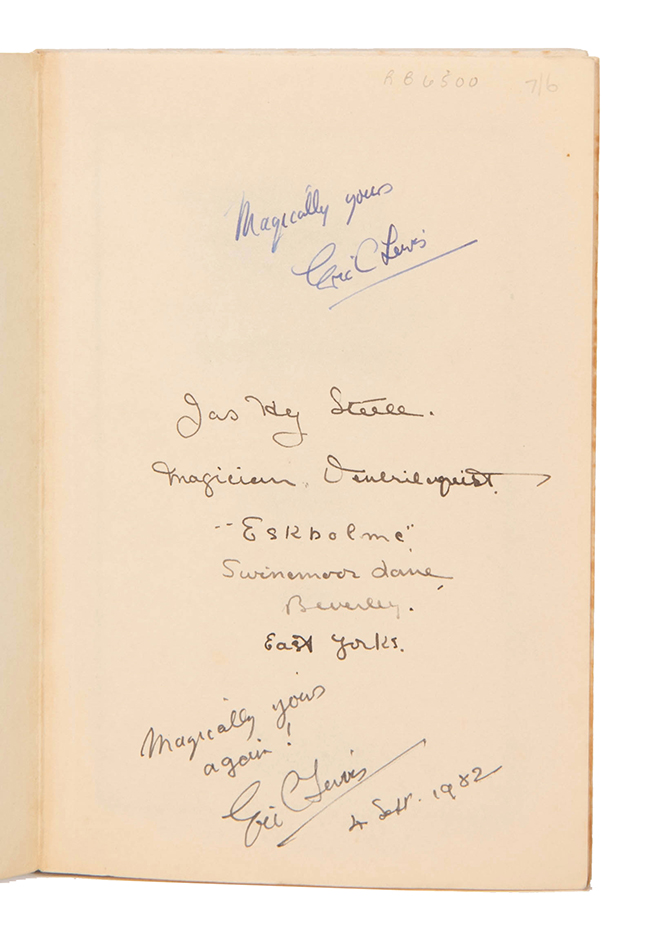 RB6500 7/6
Magically yours
Eric C Lewis
Jas Hy Steele.
Magician, Ventriloquist.
"Eskholme"
Swinemoor Lane,
Beverley.
East Yorks.
Magically yours
again!
Eric C Lewis
4 Sept. 1982